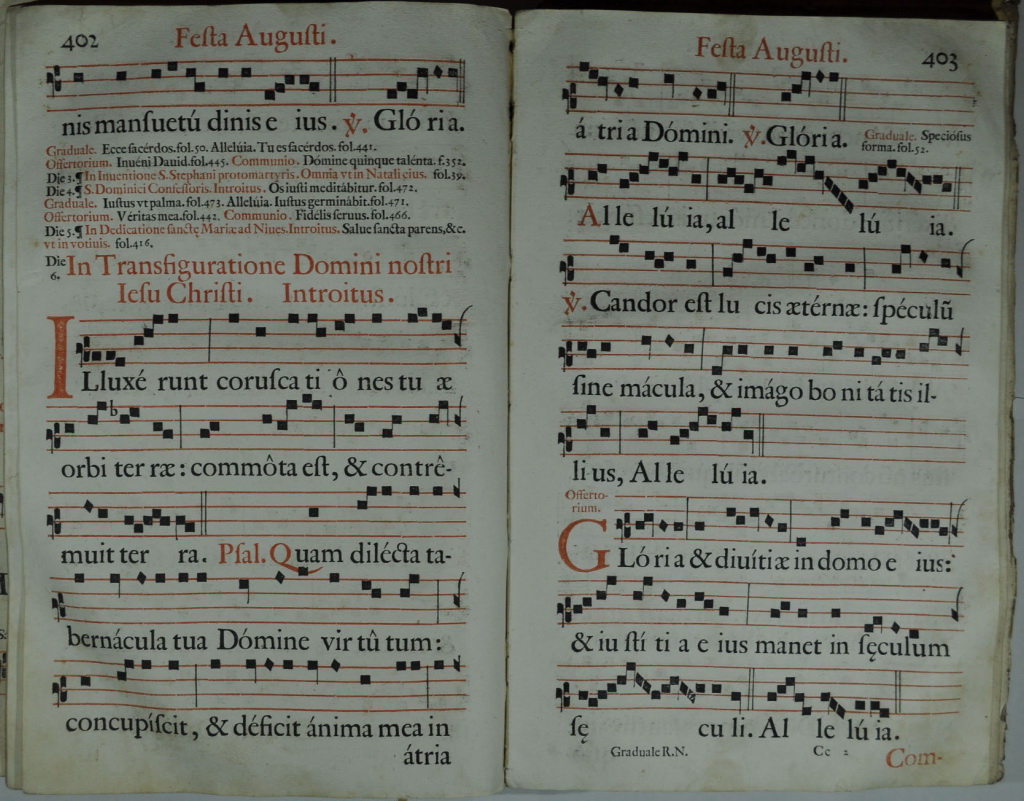 402 Feſta Auguſti.
nis manſuetú dinis e ius. ℣. Gló ri a.
Graduale. Ecce ſacérdos.fol.50. Allelúia. Tu es ſacérdos.fol.441.
Offertorium. Inuéni Dauid.fol.445. Communio. Dómine quinque talénta. f.352.
Die 3.¶ In Inuentione S. Stephani protomartyris. Omnia vt in Natali eius. fol.39.
Die 4.¶ S. Dominici Confeſſoris. Introitus. Os iuſti meditábitur. fol.472.
Graduale. Iuſtus vt palma. fol.473. Allelúia. Iuſtus germinábit.fol.471.
Offertorium. Véritas mea.fol.442. Communio. Fidelis ſeruus. fol.466.
Die 5.¶ In Dedicatione ſanctę Mariæ ad Niues. Introitus. Salue ſancta parens,&c.
vt in votiuis. fol.416.
Die 6. In Transfiguratione Domini noſtri
Ieſu Chriſti. Introitus.
ILluxé runt coruſca ti ô nes tu æ
orbi ter ræ: commôta eſt, & contrê-
muit ter ra. Pſal. Quam diléćta ta-
bernácula tua Dómine vir tû tum:
concupíſcit, & déficit ánima mea in
átria
Feſta Auguſti. 403
á tri a Dómini. ℣. Glória. Graduale. Specióſus
forma. fol.52.
Al le lú ia, al le lú ia.
℣. Candor eſt lu cis ætérnæ: ſpéculũ
ſine mácula, & imágo bo ni tá tis il-
li us, Al le lú ia.
Offerto-
rium.
GLó ri a & diuítiæ in domo e ius:
& iu ſtí ti a e ius manet in ſęculum
ſę cu li. Al le lú ia.
Graduale R.N. Cc 2 Com-